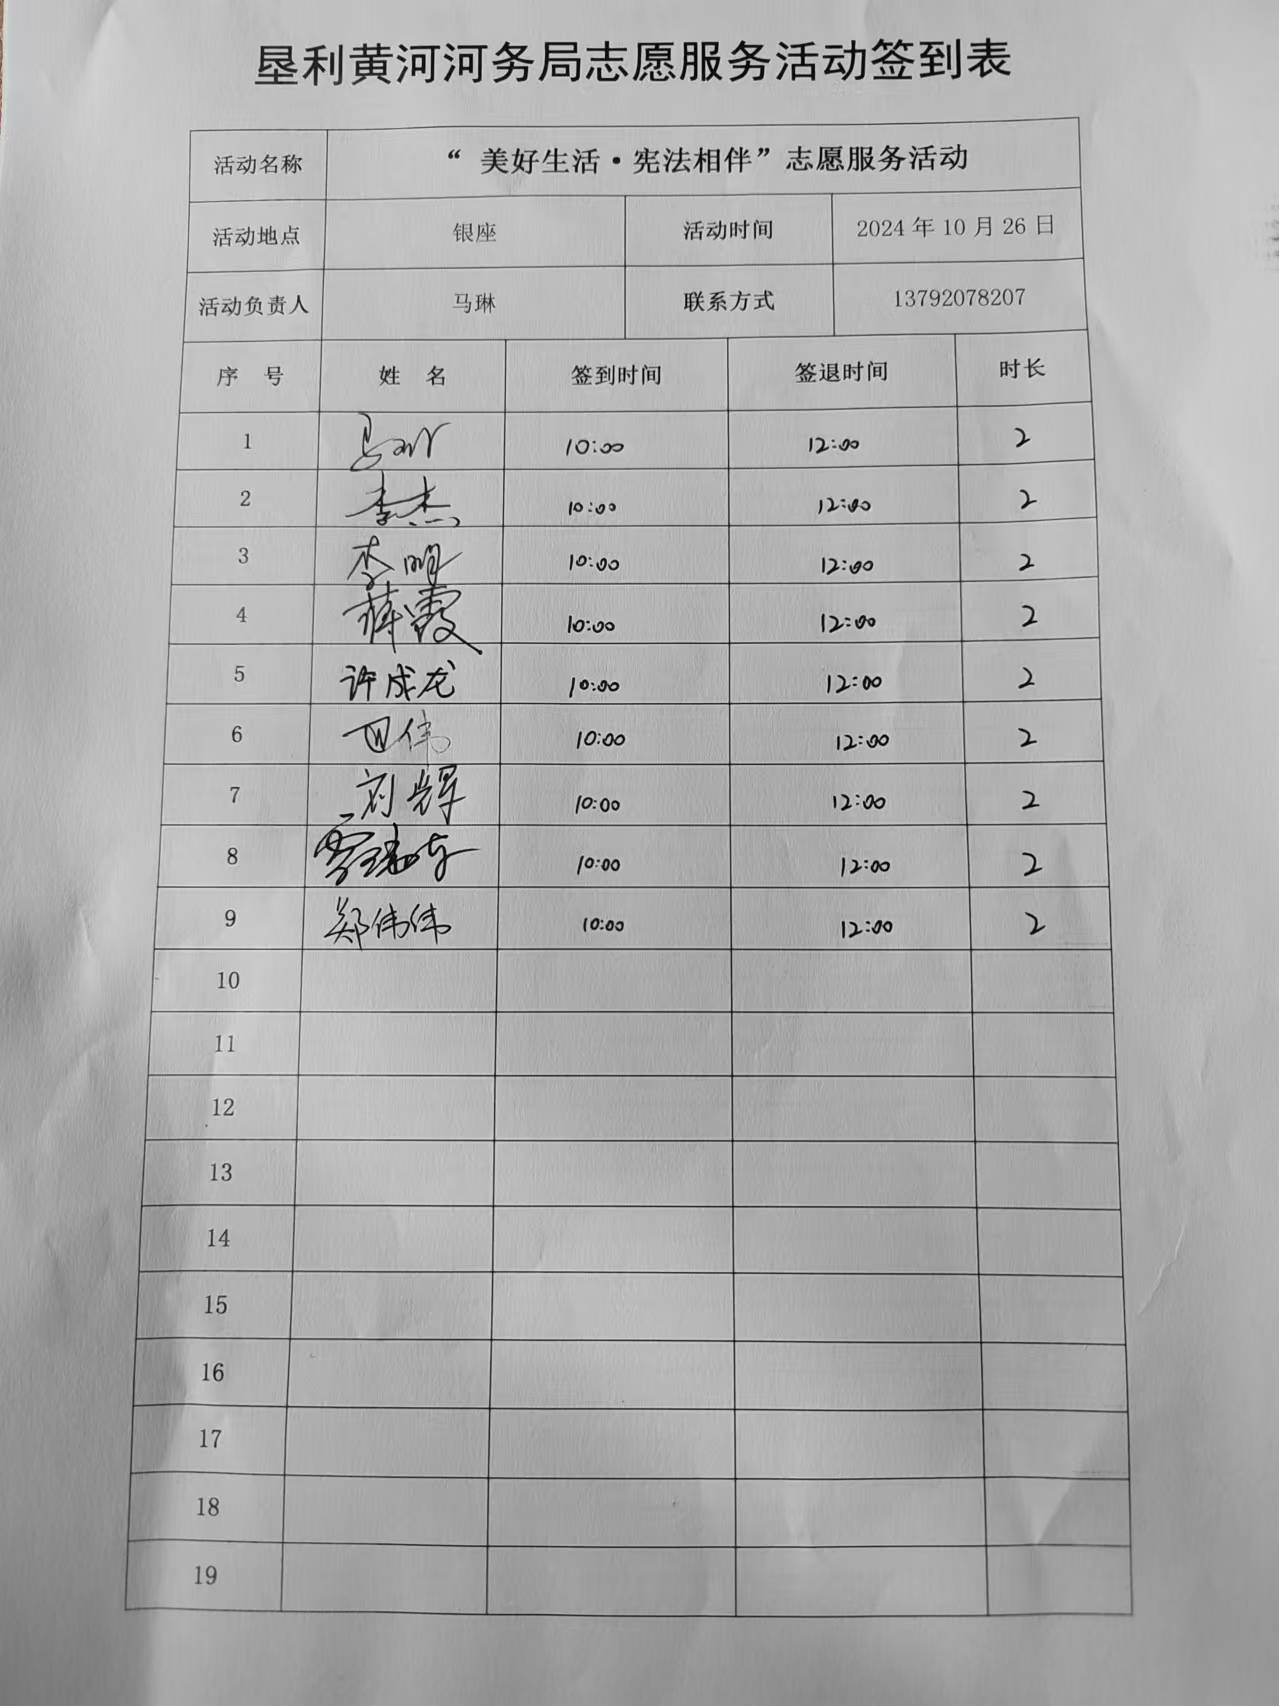 垦利黄河河务局志愿服务活动签到表
活动名称 “美好生活·宪法相伴”志愿服务活动
活动地点 银座 活动时间 2024年10月26日
活动负责人 马琳 联系方式 13792078207
序号 姓名 签到时间 签退时间 时长
1 马琳 10:00 12:00 2
2 李杰 10:00 12:00 2
3 李明 10:00 12:00 2
4 薛霞 10:00 12:00 2
5 许成龙 10:00 12:00 2
6 田伟 10:00 12:00 2
7 刘辉 10:00 12:00 2
8 10:00 12:00 2
9 郑伟伟 10:00 12:00 2
10
11
12
13
14
15
16
17
18
19